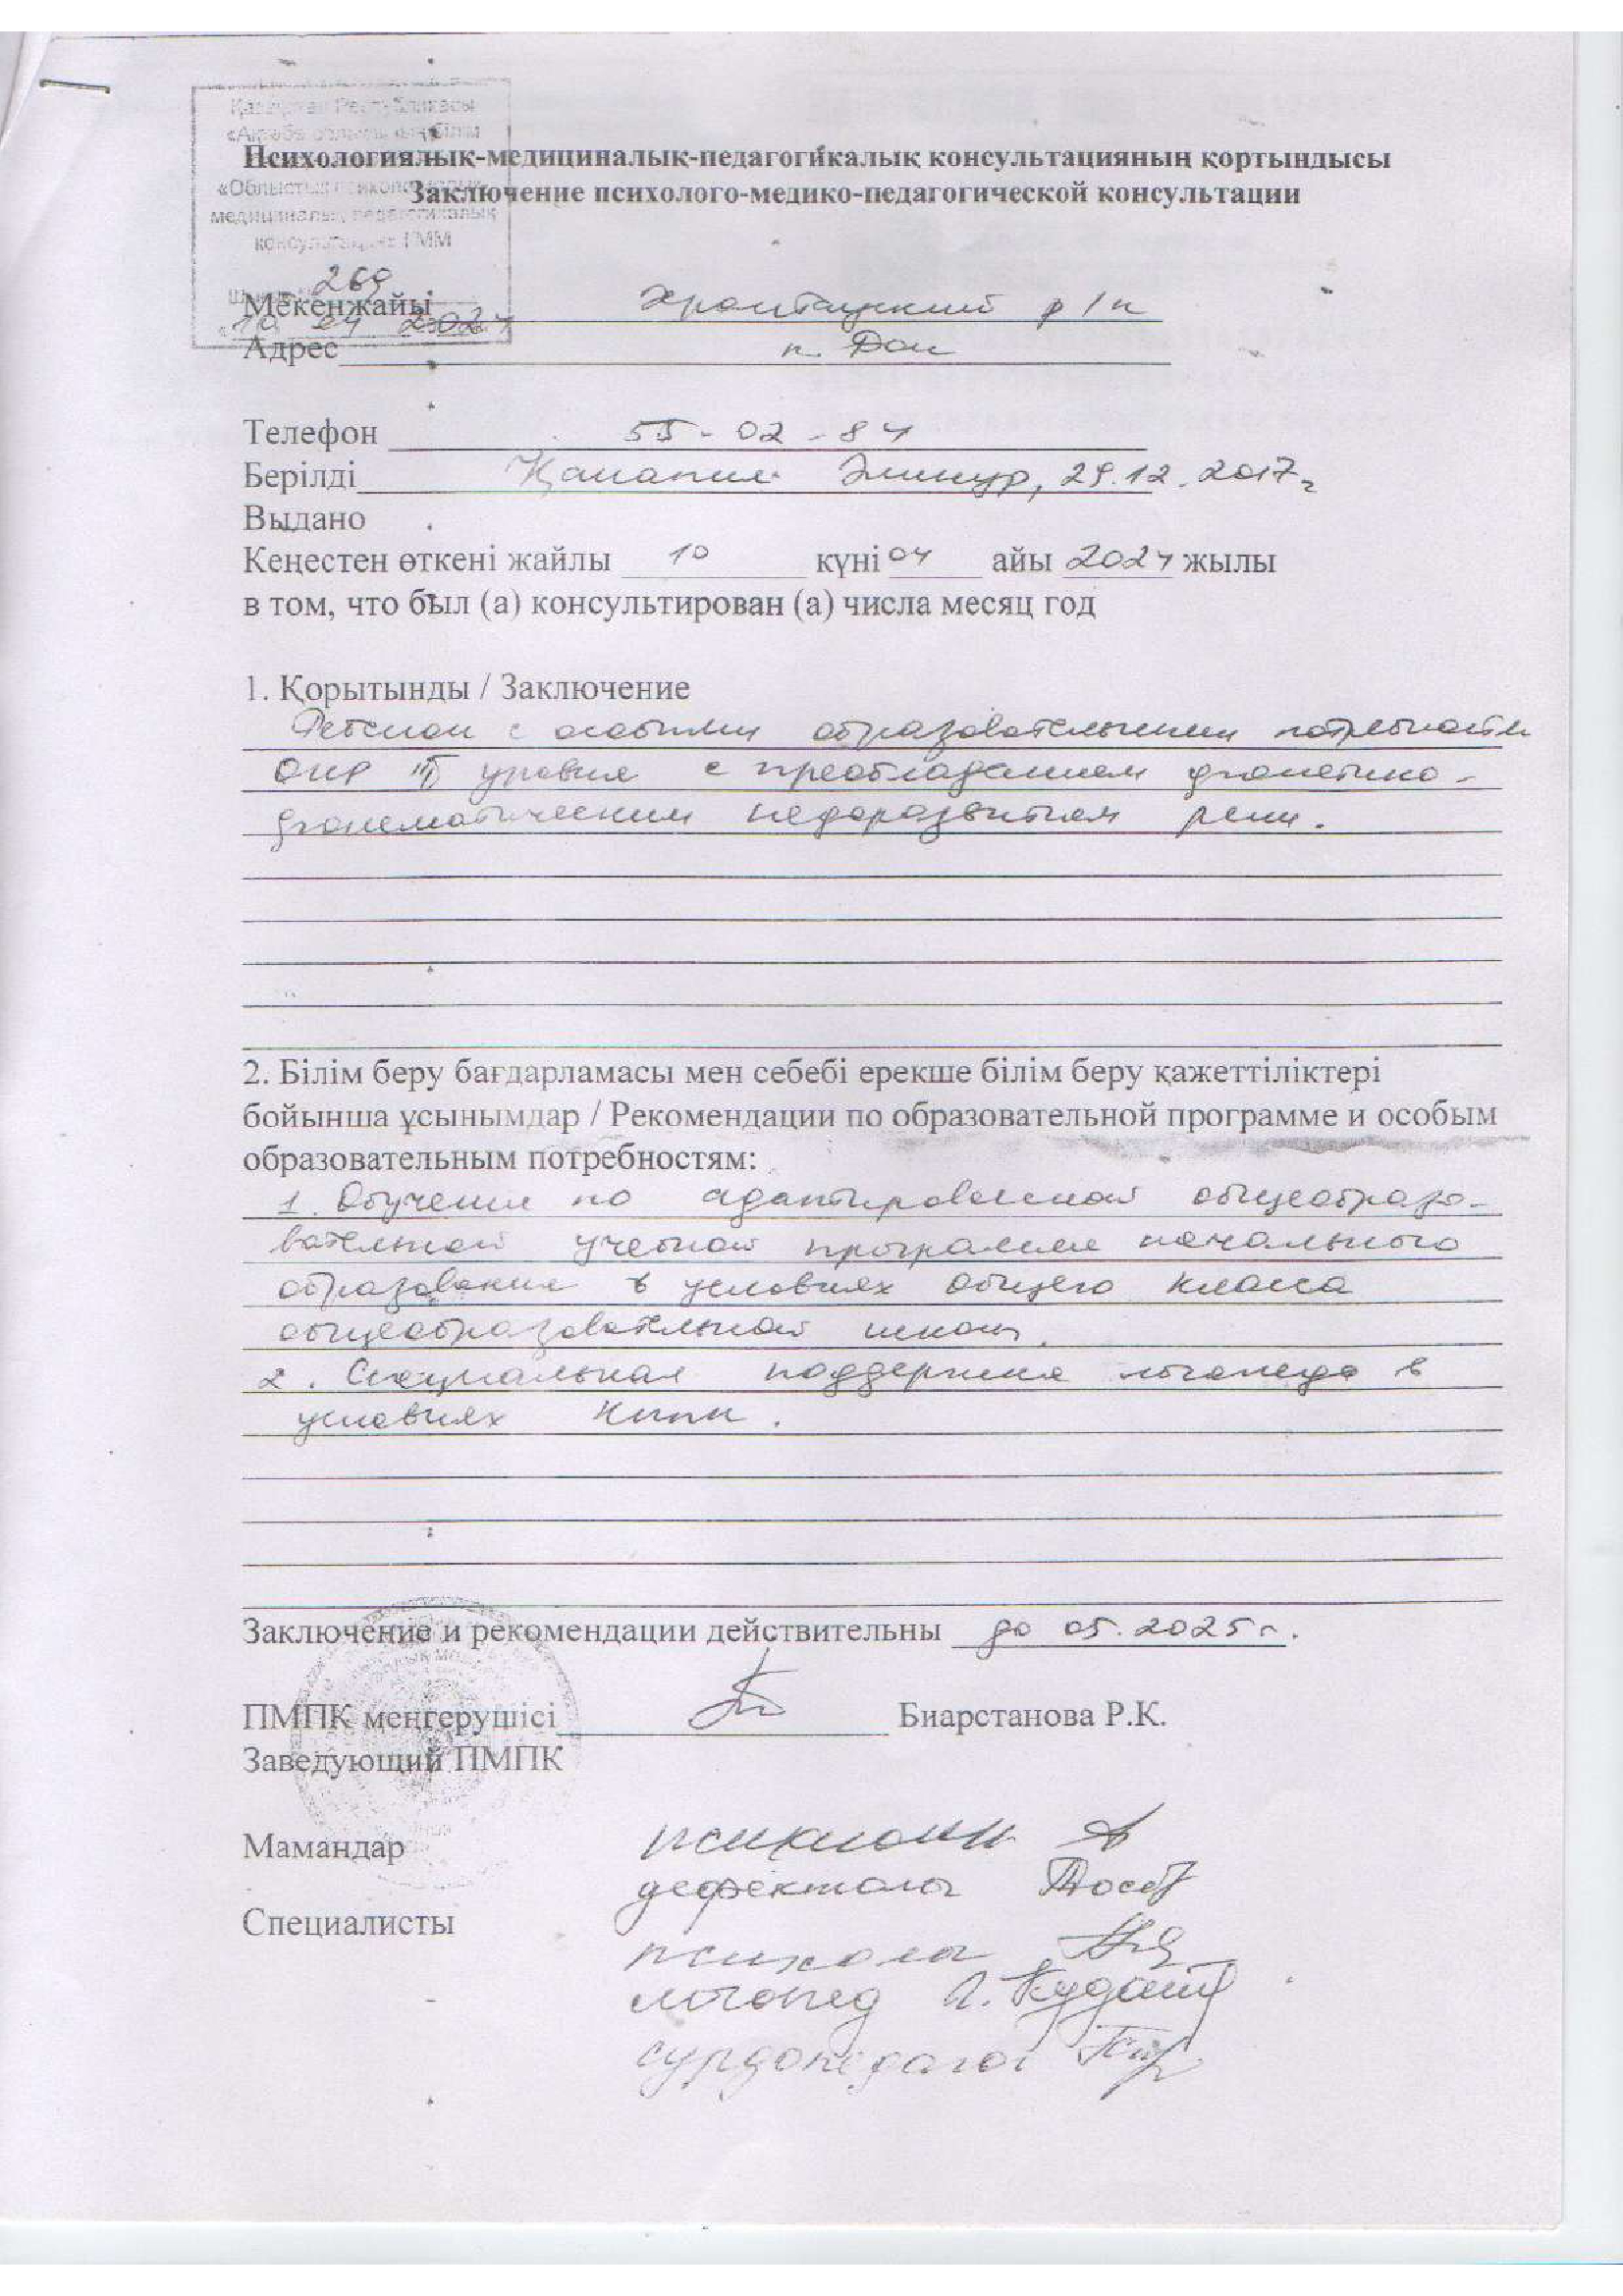 Қазақстан Республикасы
«Ақтөбе облысының білім
Психологиялық-медициналық-педагогикалық консультацияның қортындысы
Заключение психолого-медико-педагогической консультации
«Облыстық психологиялық-
медициналық педагогикалық
консультация» КММ
269
Мекенжайы Хромтауский р/н
«10 04 2024
Адрес п. Дон
Телефон 55-02-84
Берілді Эминур, 29.12.2017г
Выдано
Кеңестен өткені жайлы 10 күні 04 айы 2024 жылы
в том, что был (а) консультирован (а) числа месяц год
1. Қорытынды / Заключение
Ребенок с особыми образовательными потребности
ОНР III уровня с преобладанием фонетико-
фонематическим недоразвитием речи.
2. Білім беру бағдарламасы мен себебі ерекше білім беру қажеттіліктері
бойынша ұсынымдар / Рекомендации по образовательной программе и особым
образовательным потребностям:
1. Обучение по адаптированной общеобразо-
вательной учебной программе начального
образования в условиях общего класса
общеобразовательной школы.
2. Специальная поддержка логопеда в
условиях КППК.
Заключение и рекомендации действительны до 05.2025г.
ПМПК меңгерушісі Биарстанова Р.К.
Заведующий ПМПК
Мамандар
дефектолог
Специалисты
психолог
логопед
сурдопедагог